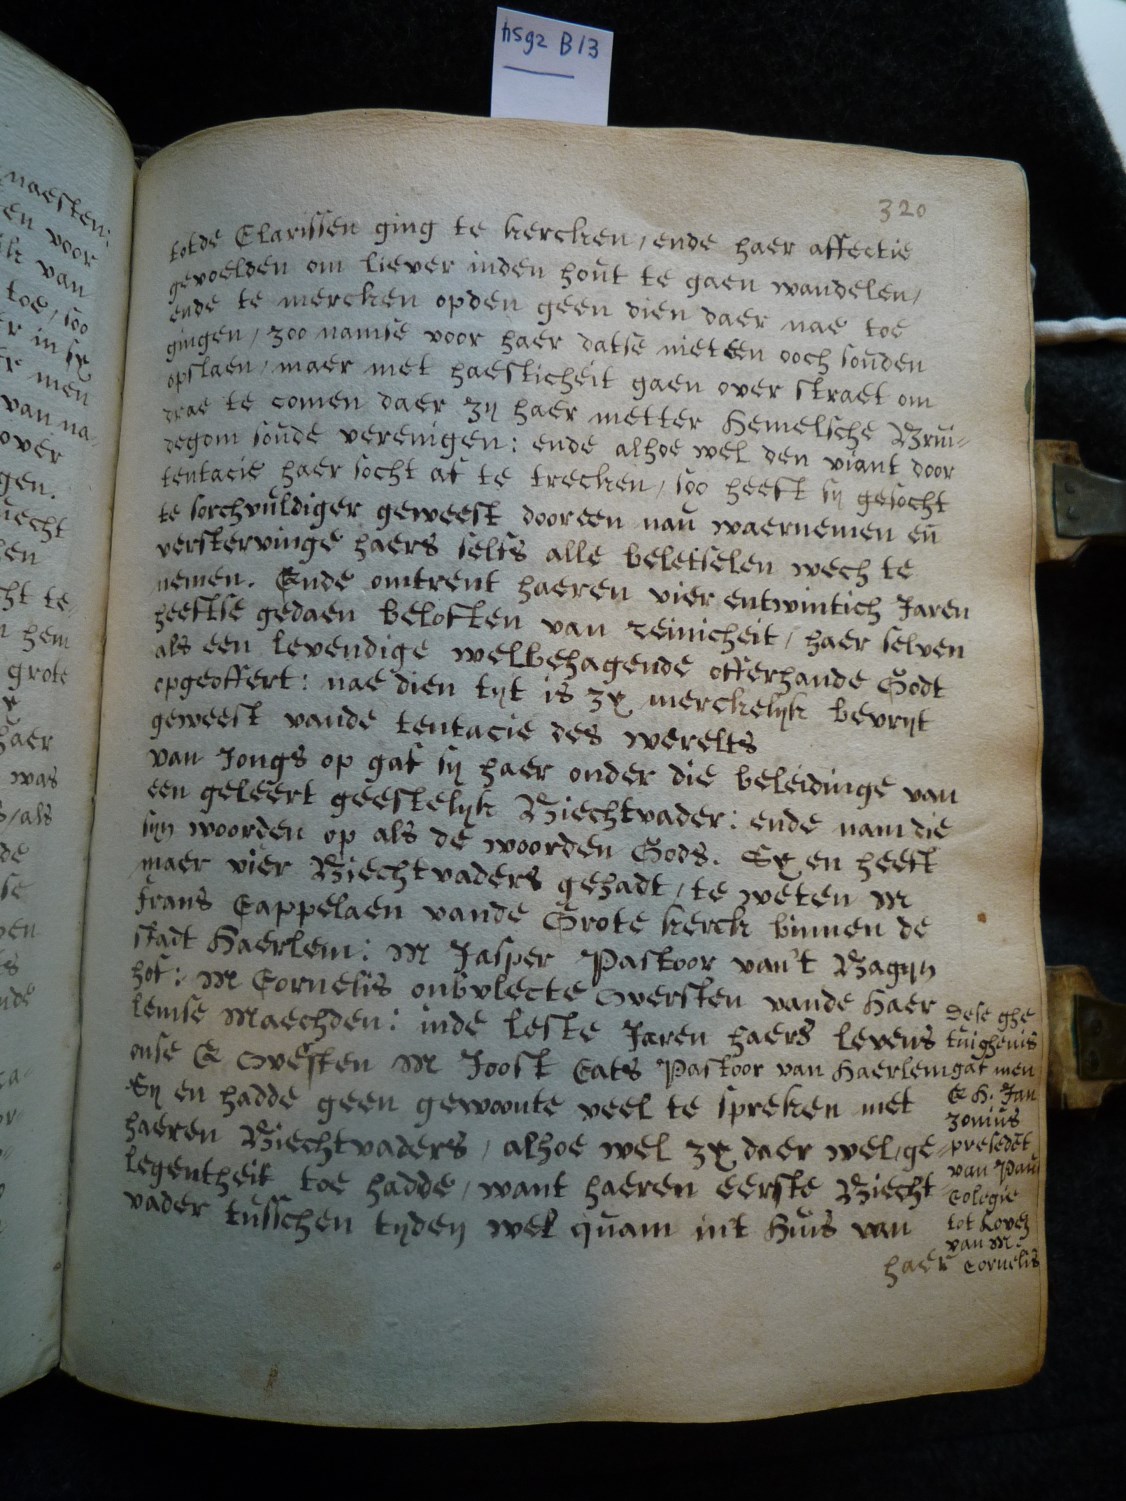 hs92 B13
320
totde Clarissen ging te kercken, ende haer affectie
gevoelden om liever inden hout te gaen wandelen,
ende te mercken opden geen dien daer nae toe
gingen, zoo namse voor haer datse niet een ooch souden
opslaen, maer met haesticheit gaen over straet om
drae te comen daer zij haer metter Hemelsche Brui-
degom soude verenigen: ende alhoe wel den viant door
tentacie haer socht af te trecken, soo heeft sij gesocht
te sorchvuldiger geweest door een nau waernemen en
verstervinge haers selfs alle beletselen wech te
nemen. Ende omtrent haeren vier entwintich Jaren
heeftse gedaen beloften van reinicheit, haer selven
als een levendige welbehagende offerhande Godt
opgeoffert: nae dien tijt is zy merckelijk bevrijt
geweest vande tentacie des werelts
van Jongs op gaf sij haer onder die beleidinge van
een geleert geestelijk Biechtvader: ende nam die
sijn woorden op als de woorden Gods. Sy en heeft
maer vier Biechtvaders gehadt, te weten M
frans Cappelaen vande Grote kerck binnen de
stadt Haerlem: M Jasper Pastoor van't Bagijn
hof: M Cornelis onbvlecte Oversten vande Haer
lemse Maechden: inde leste Jaren haers levens
onse E Oversten M Joost Cats Pastoor van Haerlem
Sij en hadde geen gewoonte veel te spreken met
haeren Biechtvaders, alhoe wel zy daer wel, ge-
legentheit toe hadde, want haeren eerste Biecht-
vader tusschen tijden wel quam int Huis van
haer
Dese ghe
tuighenis
gaf men
E H. Jan
zonius
presedet
van Paus
Colegie
tot Loven
van M.
Cornelis